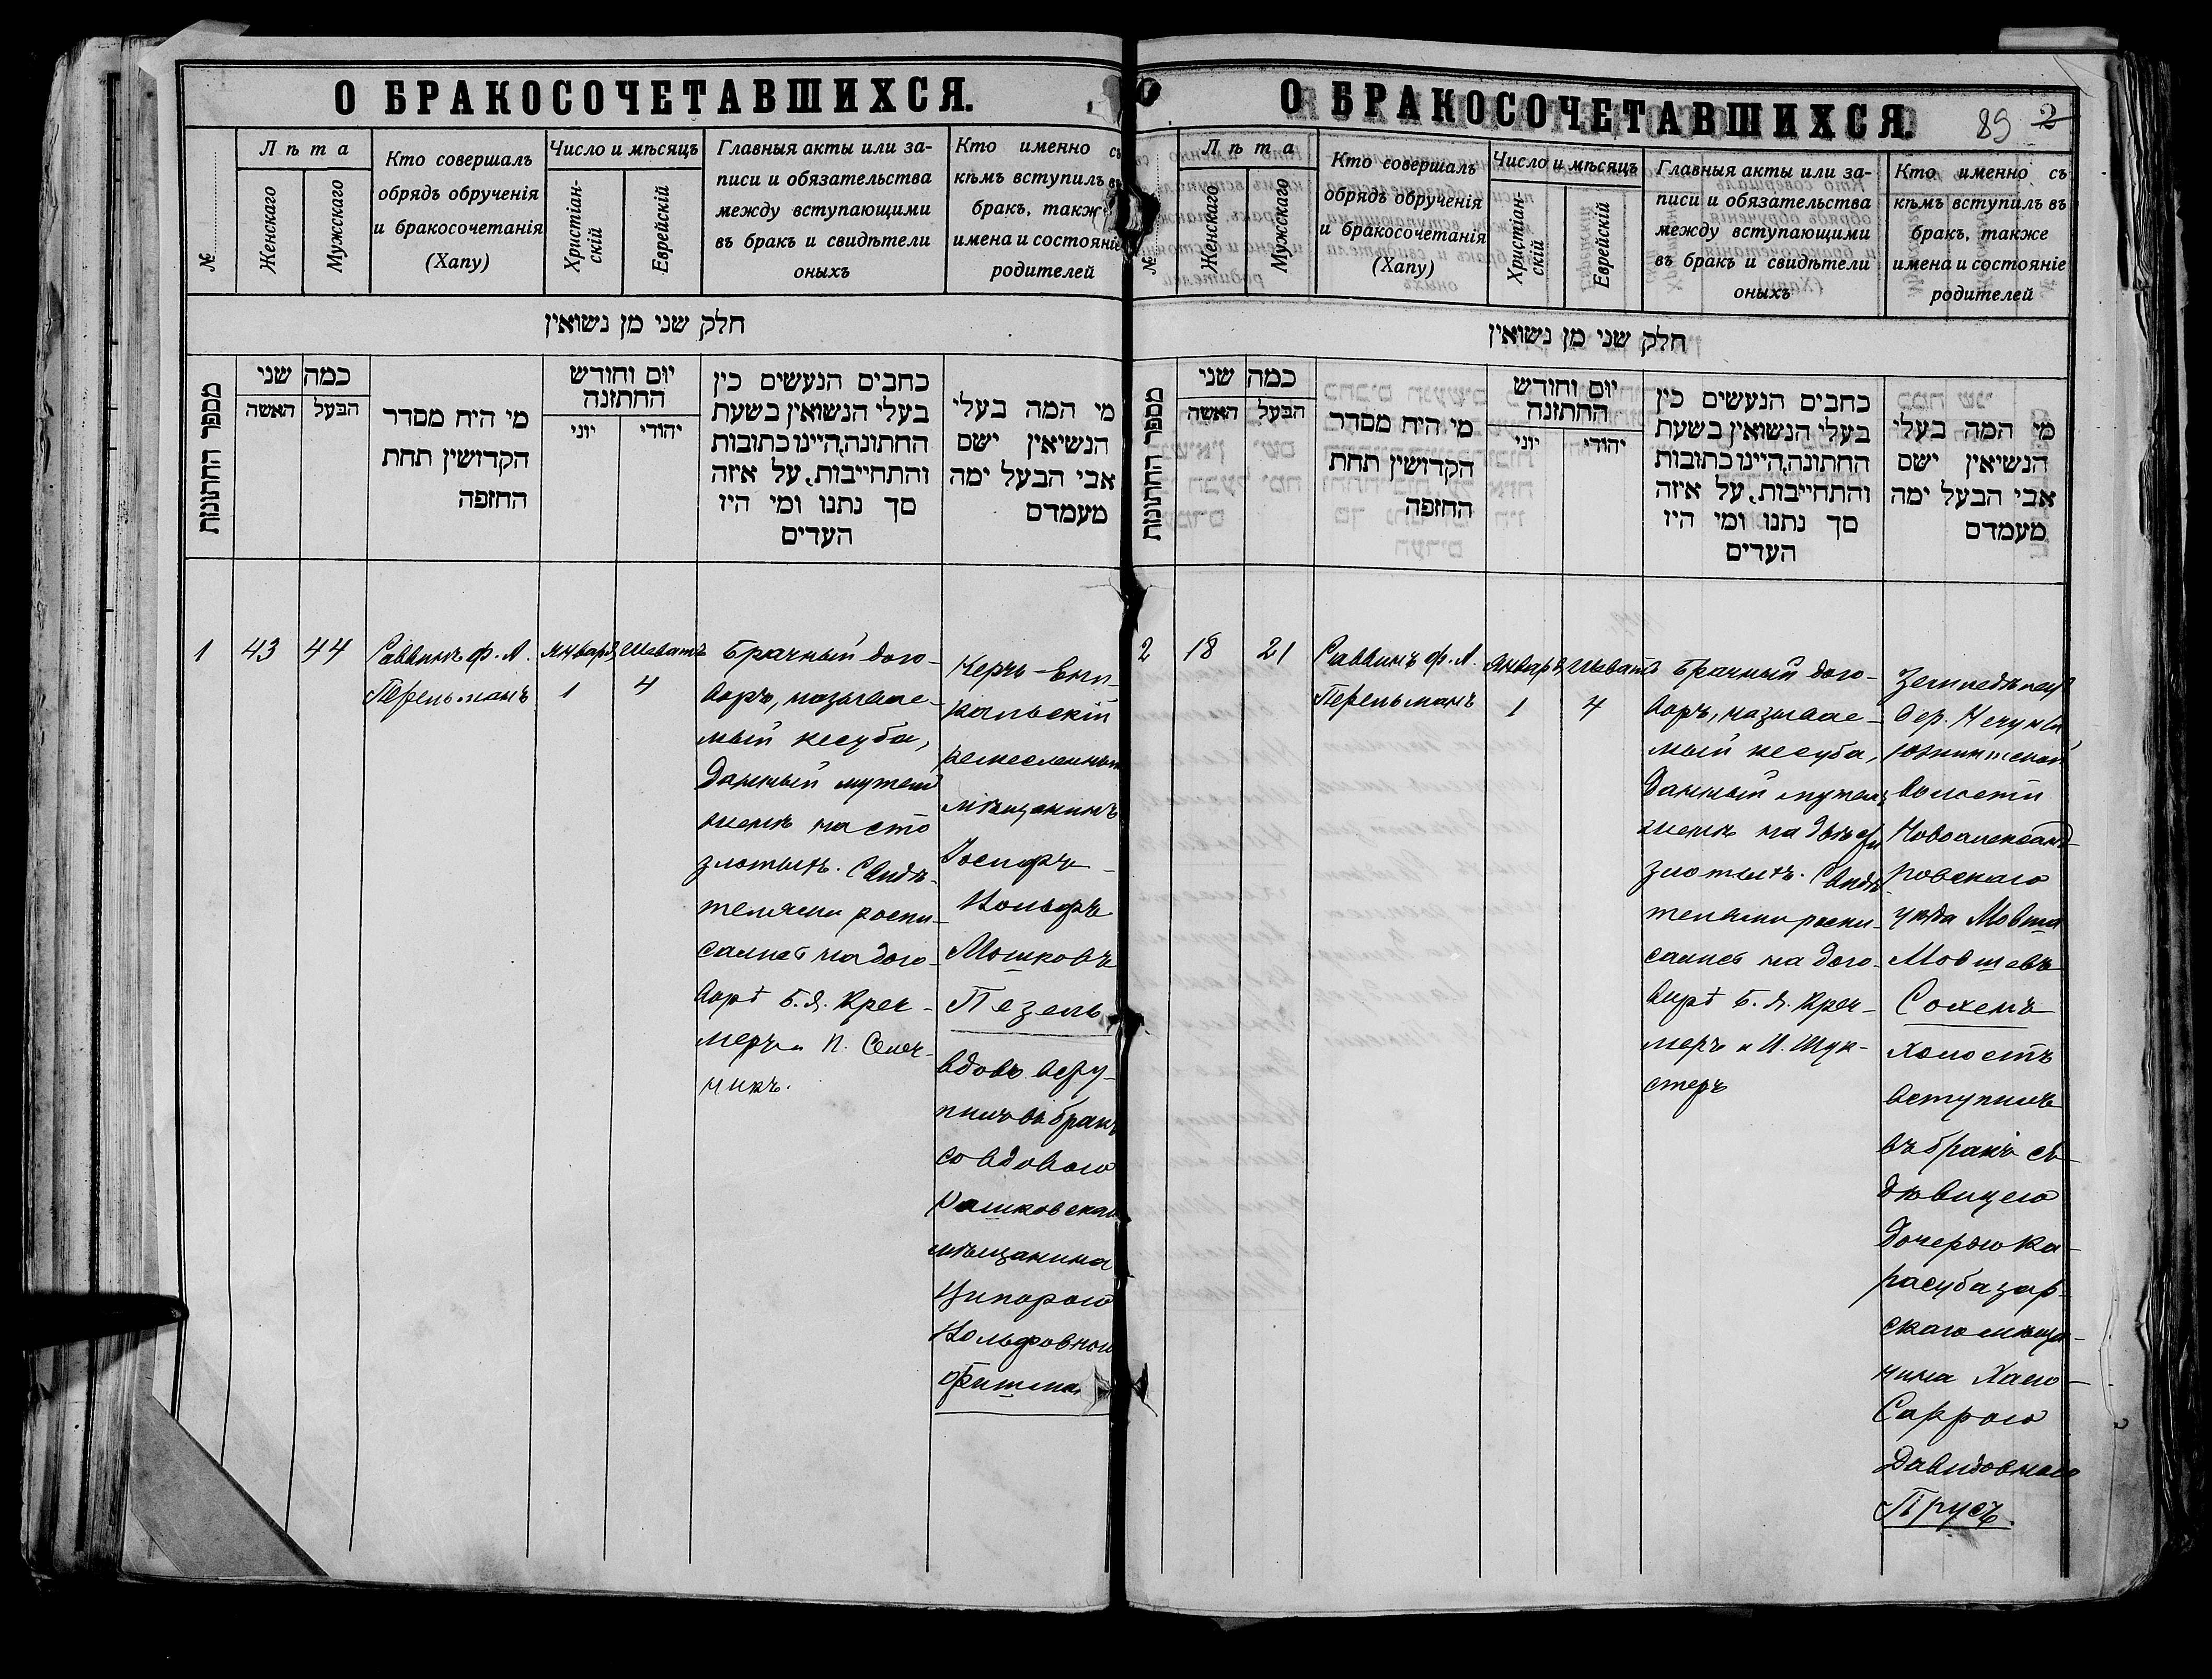 О БРАКОСОЧЕТАВШИХСЯ.
№
Лѣта
Женскаго
Мужскаго
Кто совершалъ
обрядъ обрученія
и бракосочетанія
(Хапу)
Число и мѣсяцъ
Христіан-
скій
Еврейскій
Главныя акты или за-
писи и обязательства
между вступающими
въ бракъ и свидѣтели
оныхъ
Кто именно съ
кѣмъ вступилъ въ
бракъ, также
имена и состояніе
родителей
חלק שני מן נשואין
מספר החתונות
כמה שני
האשה
הבעל
מי היח מסדר
הקדושין תחת
החזפה
יום וחודש
החתזנה
יוני
יהודי
כחבים הנעשים כין
בעלי הנשואין בשעת
החתונה, היינו כתובות
והתחייבות, על איזה
סך נתנו ומי היז
העדים
מי המה בעלי
הנשיאין ישם
אבי הבעל ימה
מעמדם
1
43
44
Саввинъ Ф. Л.
Перельманъ
Январ
1
Шеватъ
4
Брачный дого-
воръ, называе-
мый кесуба,
данный мужемъ
женѣ на сто
злотыхъ. Свидѣ-
телями роспи-
сались на дого-
ворѣ Б. Я. Креч-
меръ и
Керчь-Ени-
кальскій
ремесленный
мѣщанинъ
Іосифъ-
Вольфъ
Мошковъ
Пезель
вдовъ всту-
пилъ въ бракъ
со вдовою
Рашковскаго
мѣщанина
Ципорою
Вольфовною
Фитма
О БРАКОСОЧЕТАВШИХСЯ.
89 2
№
Лѣта
Женскаго
Мужскаго
Кто совершалъ
обрядъ обрученія
и бракосочетанія
(Хапу)
Число и мѣсяцъ
Христіан-
скій
Еврейскій
Главныя акты или за-
писи и обязательства
между вступающими
въ бракъ и свидѣтели
оныхъ
Кто именно съ
кѣмъ вступилъ въ
бракъ, также
имена и состояніе
родителей
חלק שני מן נשואין
מספר החתונות
כמה שני
האשה
הבעל
מי היח מסדר
הקדושין תחת
החזפה
יום וחודש
החתזנה
יוני
יהודי
כחבים הנעשים כין
בעלי הנשואין בשעת
החתונה, היינו כתובות
והתחייבות, על איזה
סך נתנו ומי היז
העדים
מי המה בעלי
הנשיאין ישם
אבי הבעל ימה
מעמדם
2
18
21
Саввинъ Ф. Л.
Перельманъ
Январ
1
Шеватъ
4
Брачный дого-
воръ, называе-
мый кесуба,
данный мужемъ
женѣ на двѣсти
злотыхъ. Свидѣ-
телями роспи-
сались на дого-
ворѣ Б. Я. Креч-
меръ и И. Шук-
стеръ
Земледѣлецъ
дер.
волости
Новоалександ-
ровскаго
уѣзда Мовша
Мовшевъ
Сохенъ
холостъ
вступилъ
въ бракъ съ
дѣвицею
дочерью Ка-
расубазар-
скаго мѣща-
нина Хаею-
Саррою
Давидовною
Прусъ.